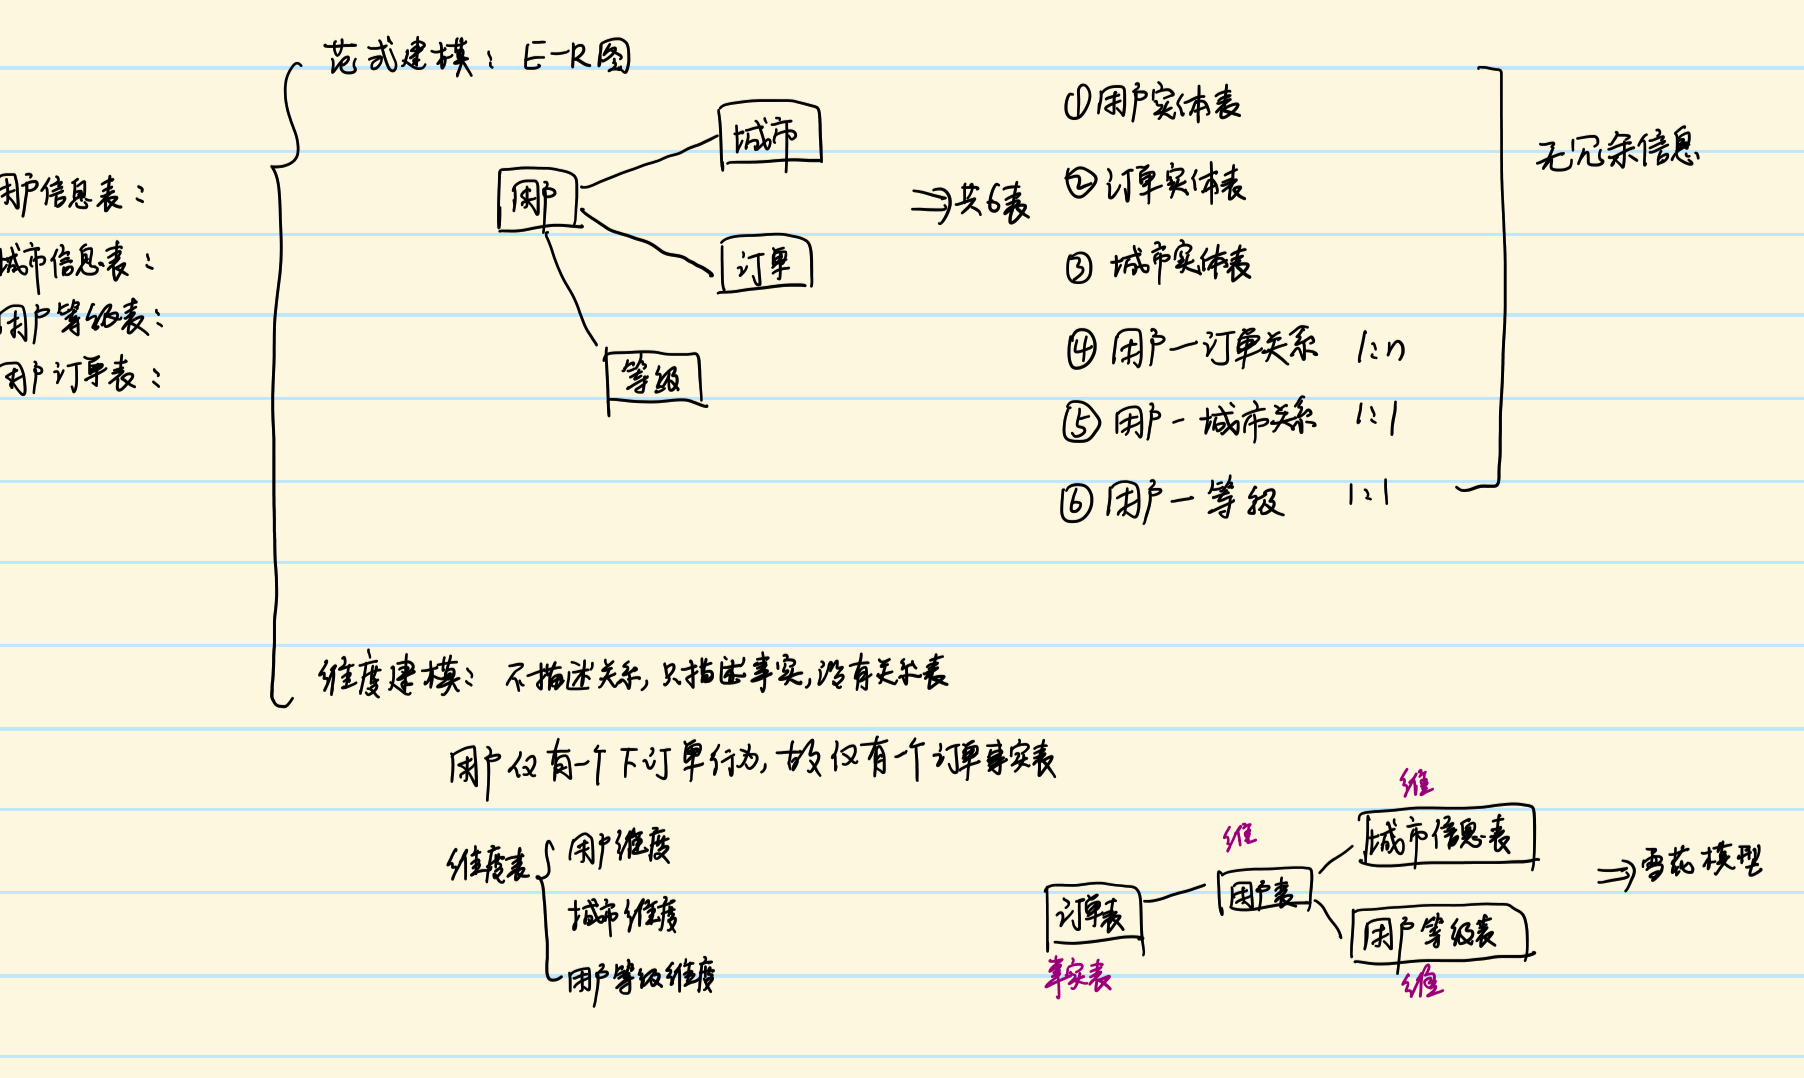 用户信息表：
城市信息表：
用户等级表：
用户订单表：
范式建模：E-R图
用户
城市
订单
等级
⇒共6表
①用户实体表
②订单实体表
③城市实体表
④用户一订单关系 1:n
⑤用户-城市关系 1:1
⑥用户一等级 1:1
无冗余信息
维度建模：不描述关系,只描述事实,没有关系表
用户仅有一个下订单行为,故仅有一个订单事实表
维度表
用户维度
城市维度
用户等级维度
订单表
事实表
维
用户表
维
城市信息表
用户等级表
维
⇒雪花模型